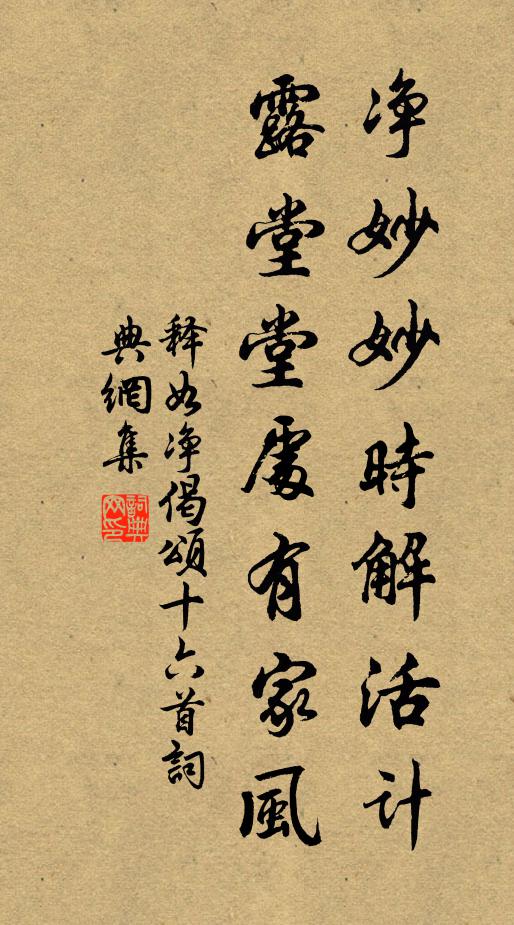 净妙妙時解活计
露堂堂處有家風
释如净偈頌十六首詞
典網集
詞典
网印